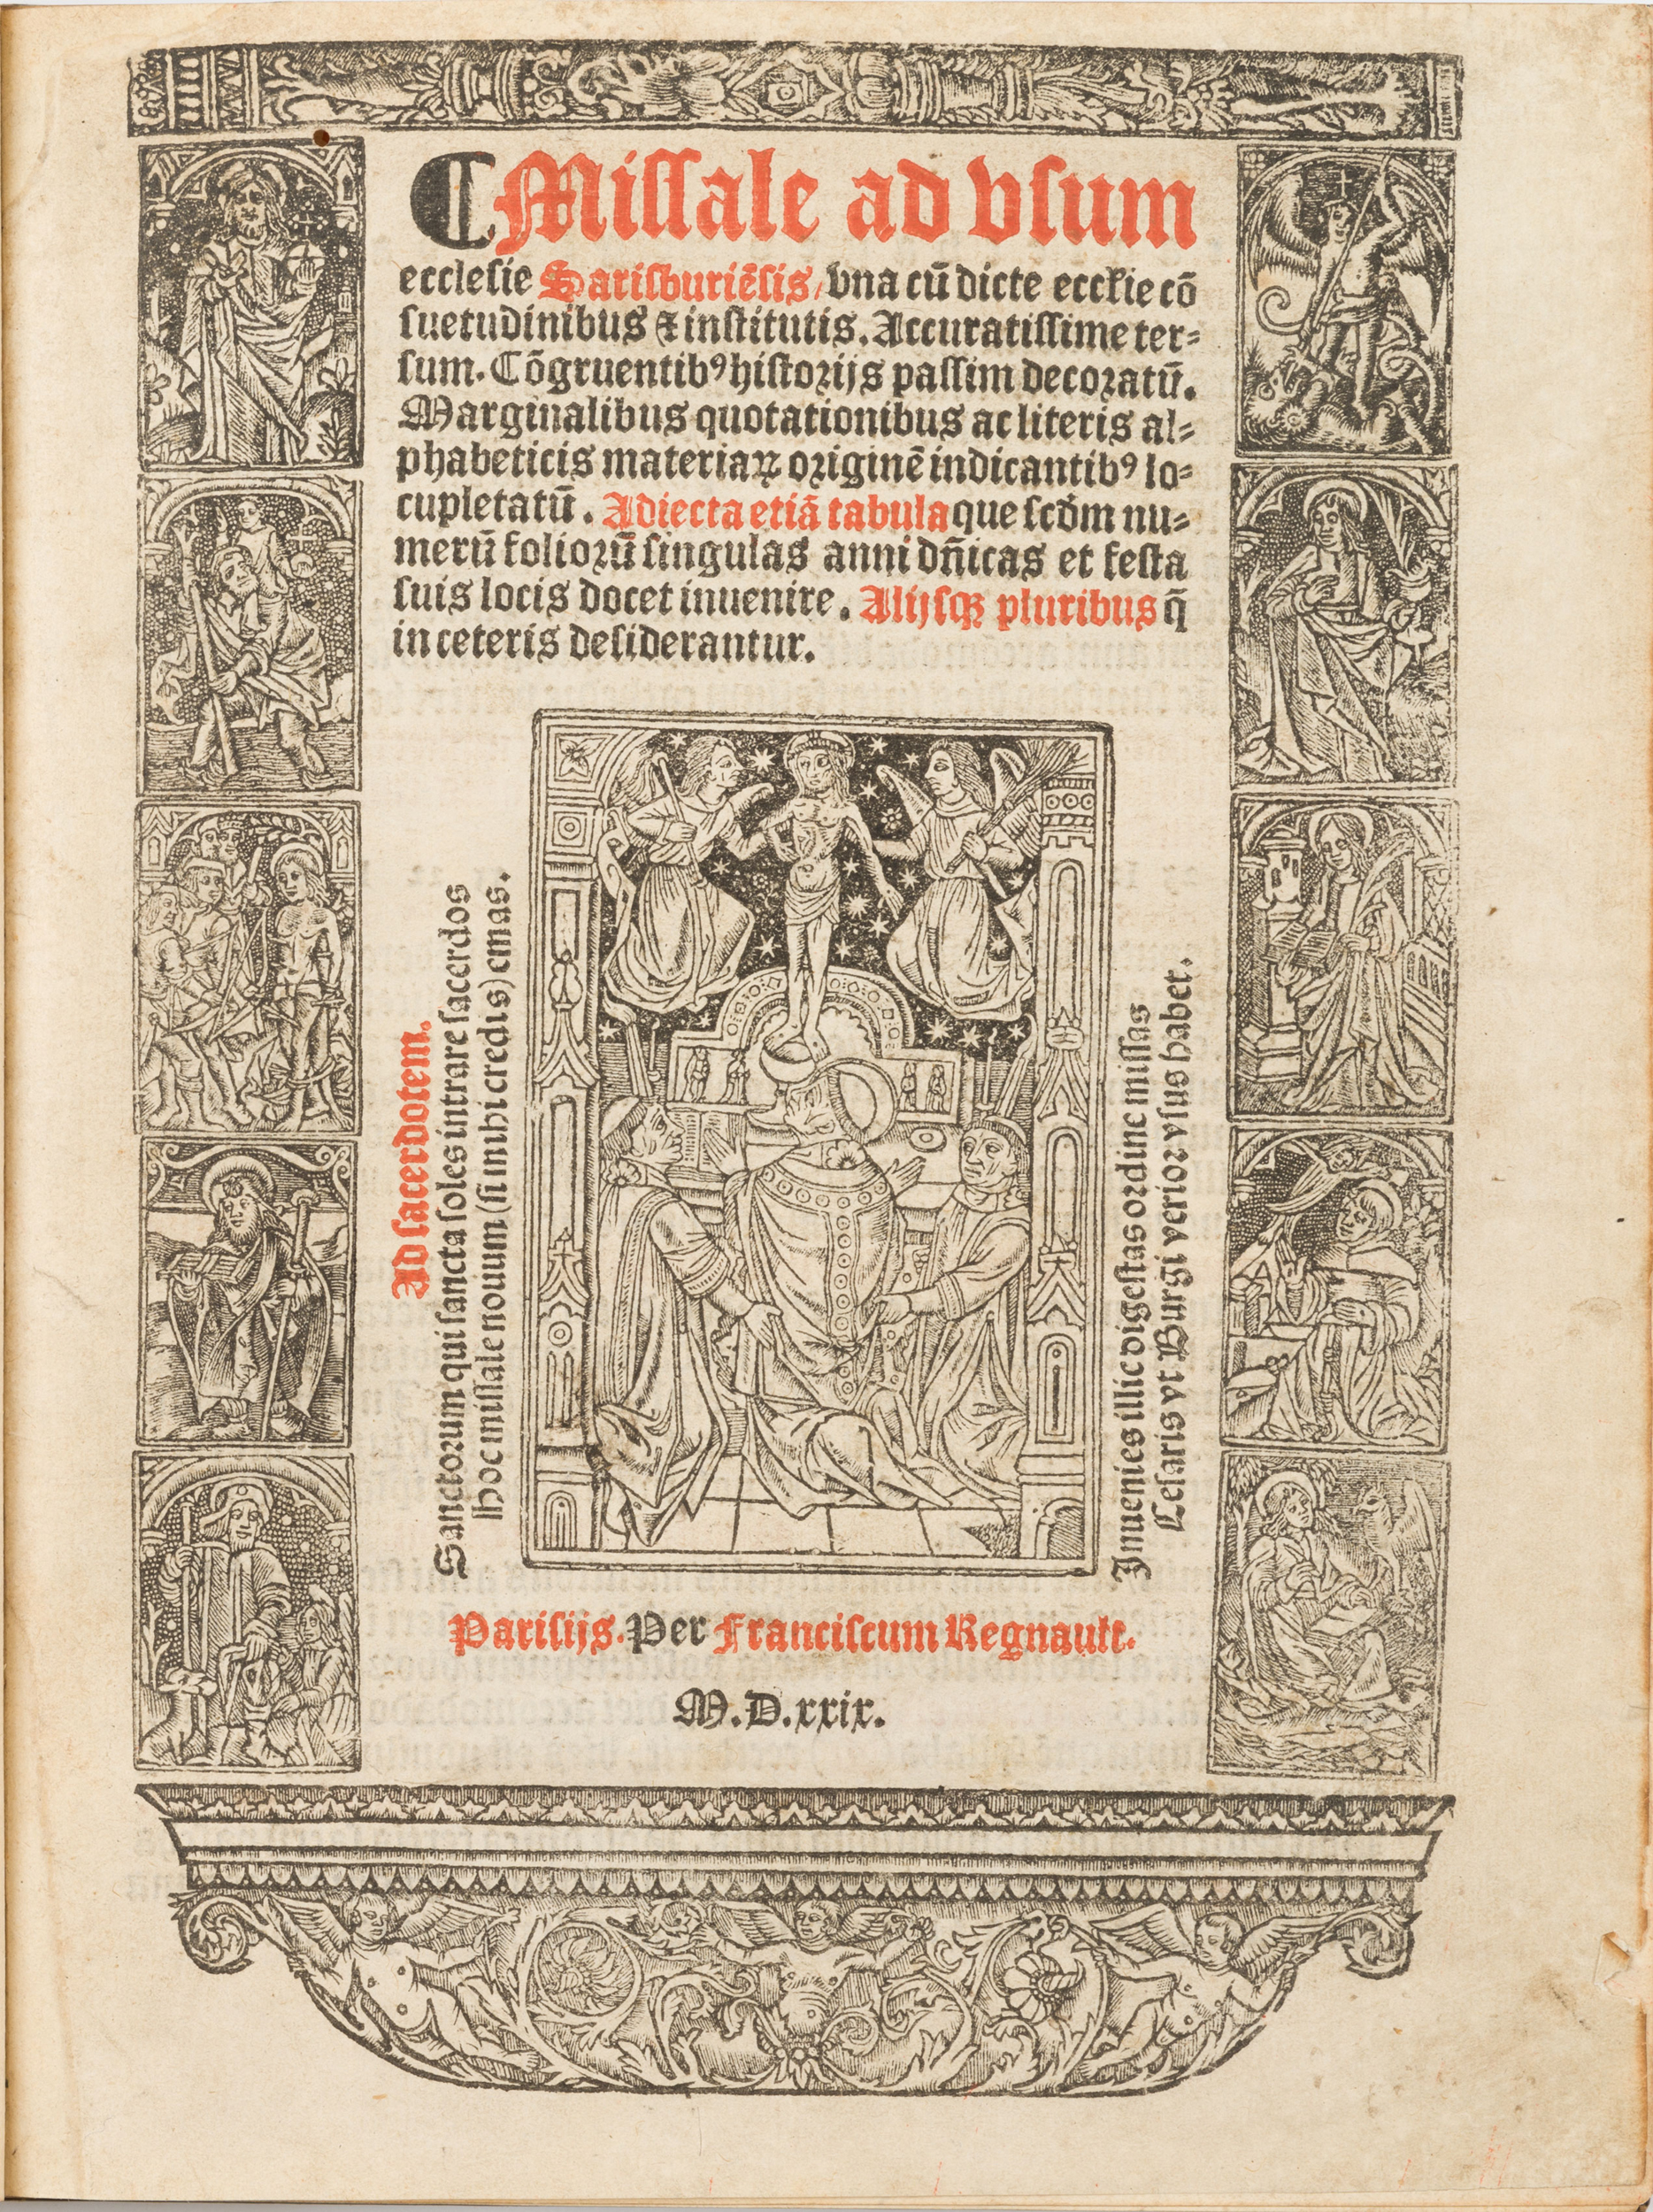 ¶Missale ad vsum
ecclesie Sarisburiēsis, vna cū dicte eccłie cō
suetudinibus ⁊ institutis. Accuratissime ter-
sum. Cōgruentibꝰ historijs passim decoratū.
Marginalibus quotationibus ac literis al-
phabeticis materiaꝝ originē indicantibꝰ lo-
cupletatū. Adiecta etiā tabula que scd̄m nu-
merū foliorū singulas anni dn̄icas et festa
suis locis docet inuenire. Alijsqꝫ pluribus q̄
in ceteris desiderantur.
Ad sacerdotem.
Sanctorum qui sancta soles intrare sacerdos
Hoc missale nouum (si mihi credis) emas.
Inuenies illic digestas ordine missas
Cesaris vt Burgi verior vsus habet.
Parisijs. Per Franciscum Regnault.
M.D.xxix.